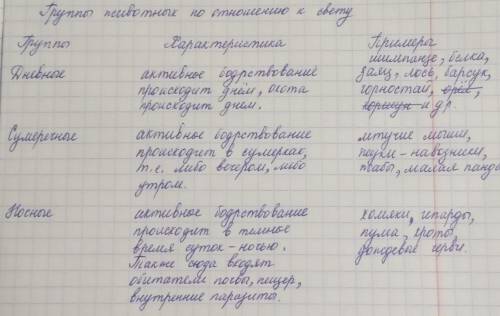 Группы животных по отношению к свету
Группы Характеристика Примеры
шимпанзе, белка,
Дневные активное бодрствование заяц, лось, барсук,
происходит днём, охота горностай, орёл,
происходит днем. коршун и др.
Сумеречные активное бодрствование летучие мыши,
происходит в сумерках, пауки-навозники,
т.е. либо вечером, либо жабы, малая панда
утром.
Ночные активное бодрствование хомяки, гепарды,
происходит в темное пума, кроты,
время суток - ночью. дождевые черви.
Также сюда входят
обитатели почвы, пещер,
внутренние паразиты.